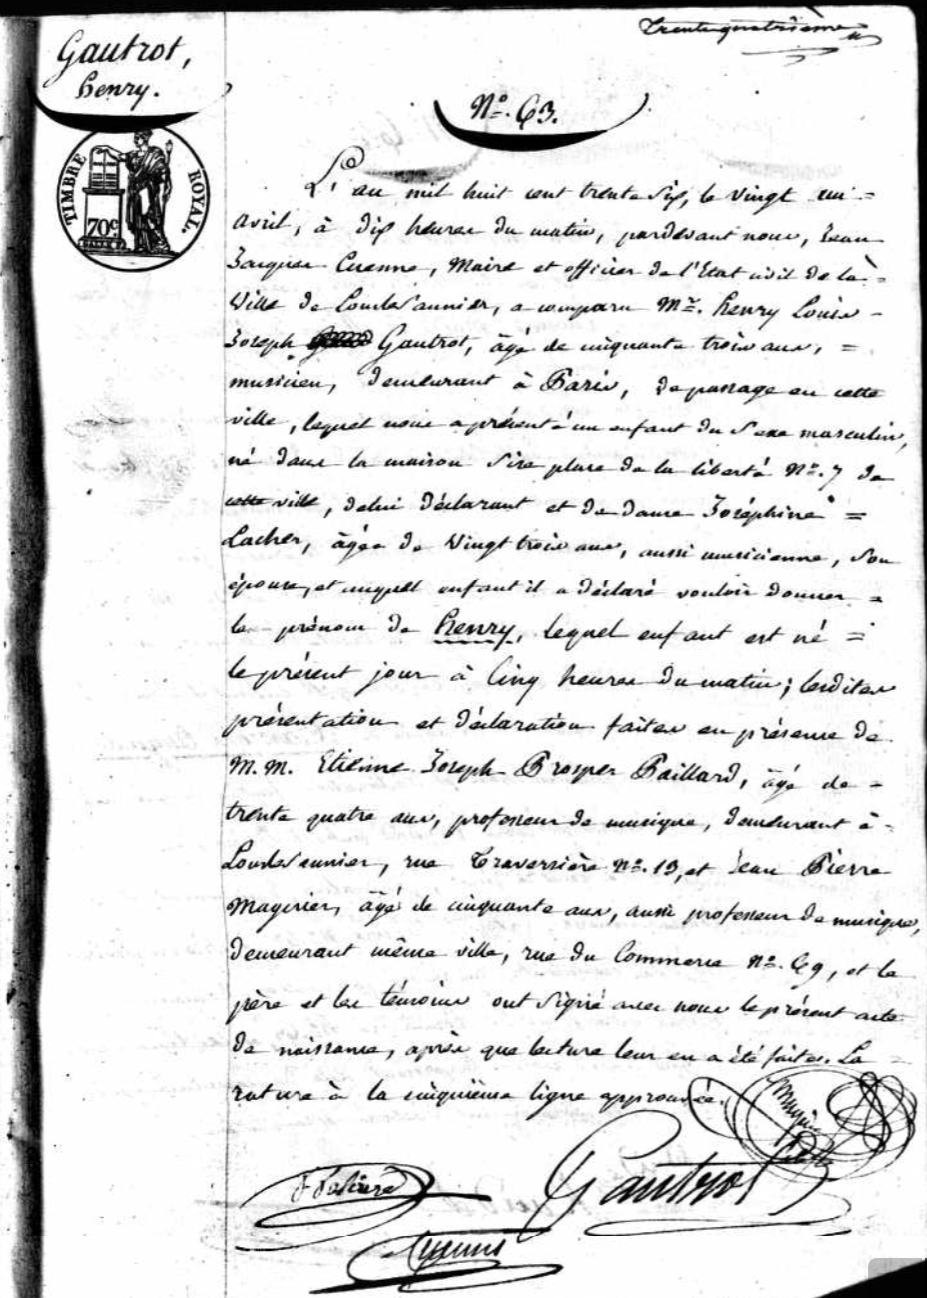 Trente quatrième
Gautrot,
henry.
TIMBRE ROYAL.
70c
No. 63.
L'an mil huit cent trente six, le vingt un =
avril, à dix heures du matin, pardevant nous, Jean
Jacques Cuenne, Maire et officier de l'Etat civil de la =
Ville de Lonslesaunier, a comparu Mr. henry Louis -
Joseph Gautrot, âgé de cinquante trois ans, =
musicien, demeurant à Paris, de passage en cette
ville, lequel nous a présenté un enfant du Sexe masculin,
né dans la maison Sise place de la liberté No. 7 de
cette ville, de lui déclarant et de dame Joséphine =
Lacher, âgée de Vingt trois ans, aussi musicienne, Son
épouse, et auquel enfant il a déclaré vouloir donner =
le prénom de henry, lequel enfant est né =
le présent jour à Cinq heures du matin; lesdites
présentation et déclaration faites en présence de
M.M. Etienne Joseph Prosper Paillard, âgé de -
trente quatre ans, professeur de musique, demeurant à -
Lonslesaunier, rue Traversière No. 13, et Jean Pierre
Magnien, âgé de cinquante ans, aussi professeur de musique,
demeurant même ville, rue du Commerce No. 69, et le
père et les témoins ont Signé avec nous le présent acte
de naissance, après que lecture leur en a été faite. La =
rature à la cinquième ligne approuvée.
Gautrot
Cuenne